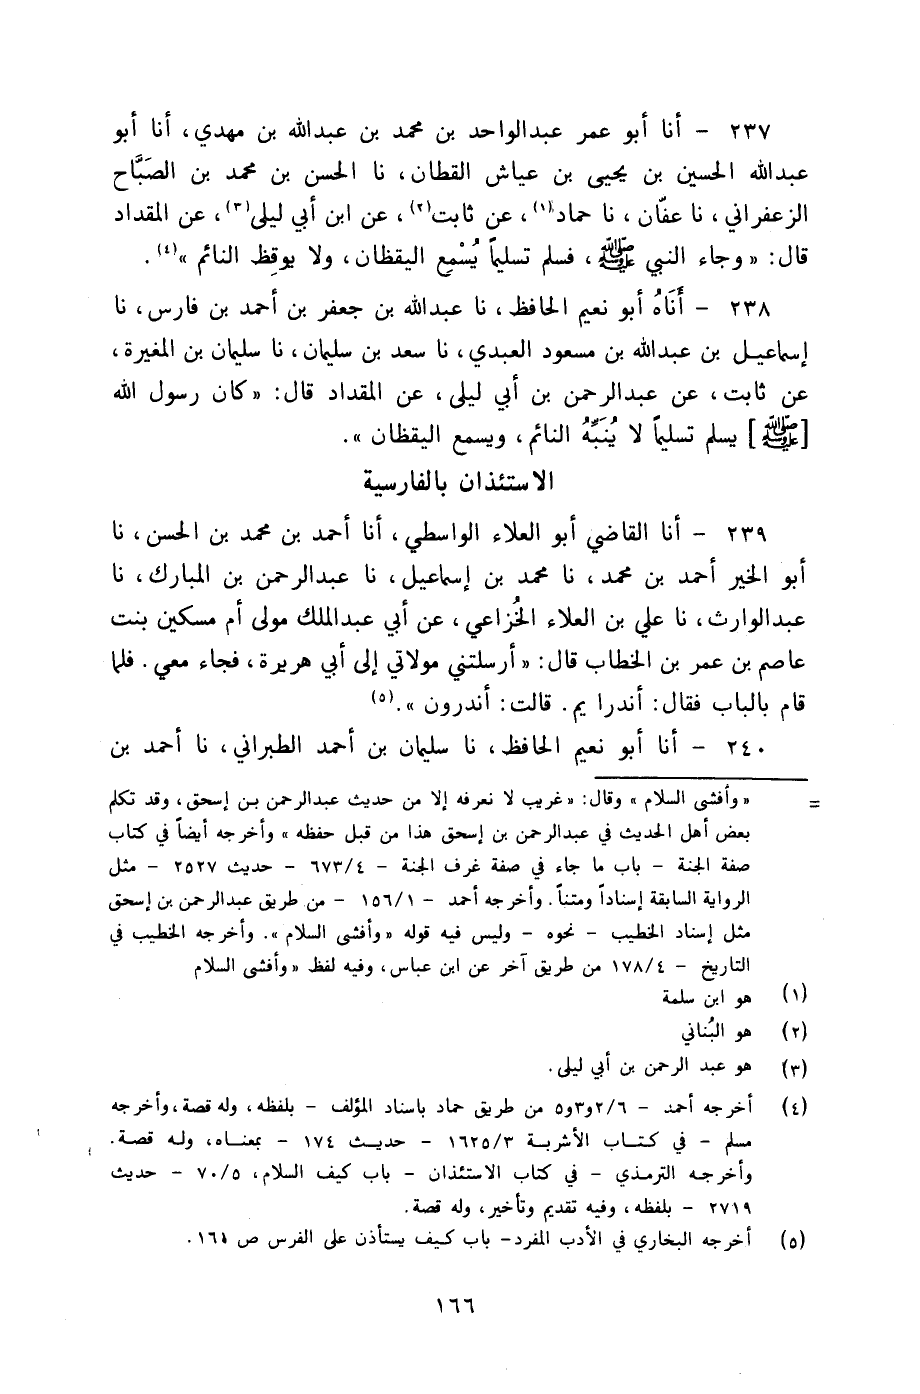 ٢٣٧ - أنا أبو عمر عبدالواحد بن محمد بن عبدالله بن مهدي، أنا أبو
عبدالله الحسين بن يحيى بن عياش القطان، نا الحسن بن محمد بن الصَبَّاح
الزعفراني، نا عفّان، نا حماد(١)، عن ثابت(٢)، عن ابن أبي ليلى(٣)، عن المقداد
قال: «وجاء النبي ﷺ، فسلم تسليماً يُسْمِع اليقظان، ولا يوقِظ النائم»(٤).
٢٣٨ - أَنَاهُ أبو نعيم الحافظ، نا عبدالله بن جعفر بن أحمد بن فارس، نا
إسماعيل بن عبدالله بن مسعود العبدي، نا سعد بن سليمان، نا سليمان بن المغيرة،
عن ثابت، عن عبدالرحمن بن أبي ليلى، عن المقداد قال: «كان رسول الله
[ﷺ] يسلم تسليماً لا يُنَبِّهُ النائم، ويسمع اليقظان».
الاستئذان بالفارسية
٢٣٩ - أنا القاضي أبو العلاء الواسطي، أنا أحمد بن محمد بن الحسن، نا
أبو الخير أحمد بن محمد، نا محمد بن إسماعيل، نا عبدالرحمن بن المبارك، نا
عبدالوارث، نا علي بن العلاء الخُزاعي، عن أبي عبدالملك مولى أم مسكين بنت
عاصم بن عمر بن الخطاب قال: «أرسلتني مولاتي إلى أبي هريرة، فجاء معي. فلما
قام بالباب فقال: أندرا يم. قالت: أندرون».(٥)
٢٤٠ - أنا أبو نعيم الحافظ، نا سليمان بن أحمد الطبراني، نا أحمد بن
= «وأفشى السلام» وقال: «غريب لا نعرفه إلا من حديث عبدالرحمن بن إسحق، وقد تكلم
بعض أهل الحديث في عبدالرحمن بن إسحق هذا من قبل حفظه» وأخرجه أيضاً في كتاب
صفة الجنة - باب ما جاء في صفة غرف الجنة - ٦٧٣/٤ - حديث ٢٥٢٧ - مثل
الرواية السابقة إسناداً ومتناً. وأخرجه أحمد - ١٥٦/١ - من طريق عبدالرحمن بن إسحق
مثل إسناد الخطيب - نحوه - وليس فيه قوله «وأفشى السلام». وأخرجه الخطيب في
التاريخ - ١٧٨/٤ من طريق آخر عن ابن عباس، وفيه لفظ «وأفشى السلام
(١) هو ابن سلمة
(٢) هو البُناني
(٣) هو عبد الرحمن بن أبي ليلى.
(٤) أخرجه أحمد - ٢/٦و٣و٥ من طريق حماد باسناد المؤلف - بلفظه، وله قصة، وأخرجه
مسلم - في كتاب الأشربة ١٦٢٥/٣ - حديث ١٧٤ - بمعناه، وله قصة.
وأخرجه الترمذي - في كتاب الاستئذان - باب كيف السلام، ٧٠/٥ - حديث
٢٧١٩ - بلفظه، وفيه تقديم وتأخير، وله قصة.
(٥) أخرجه البخاري في الأدب المفرد- باب كيف يستأذن على الفرس ص
١٦٦